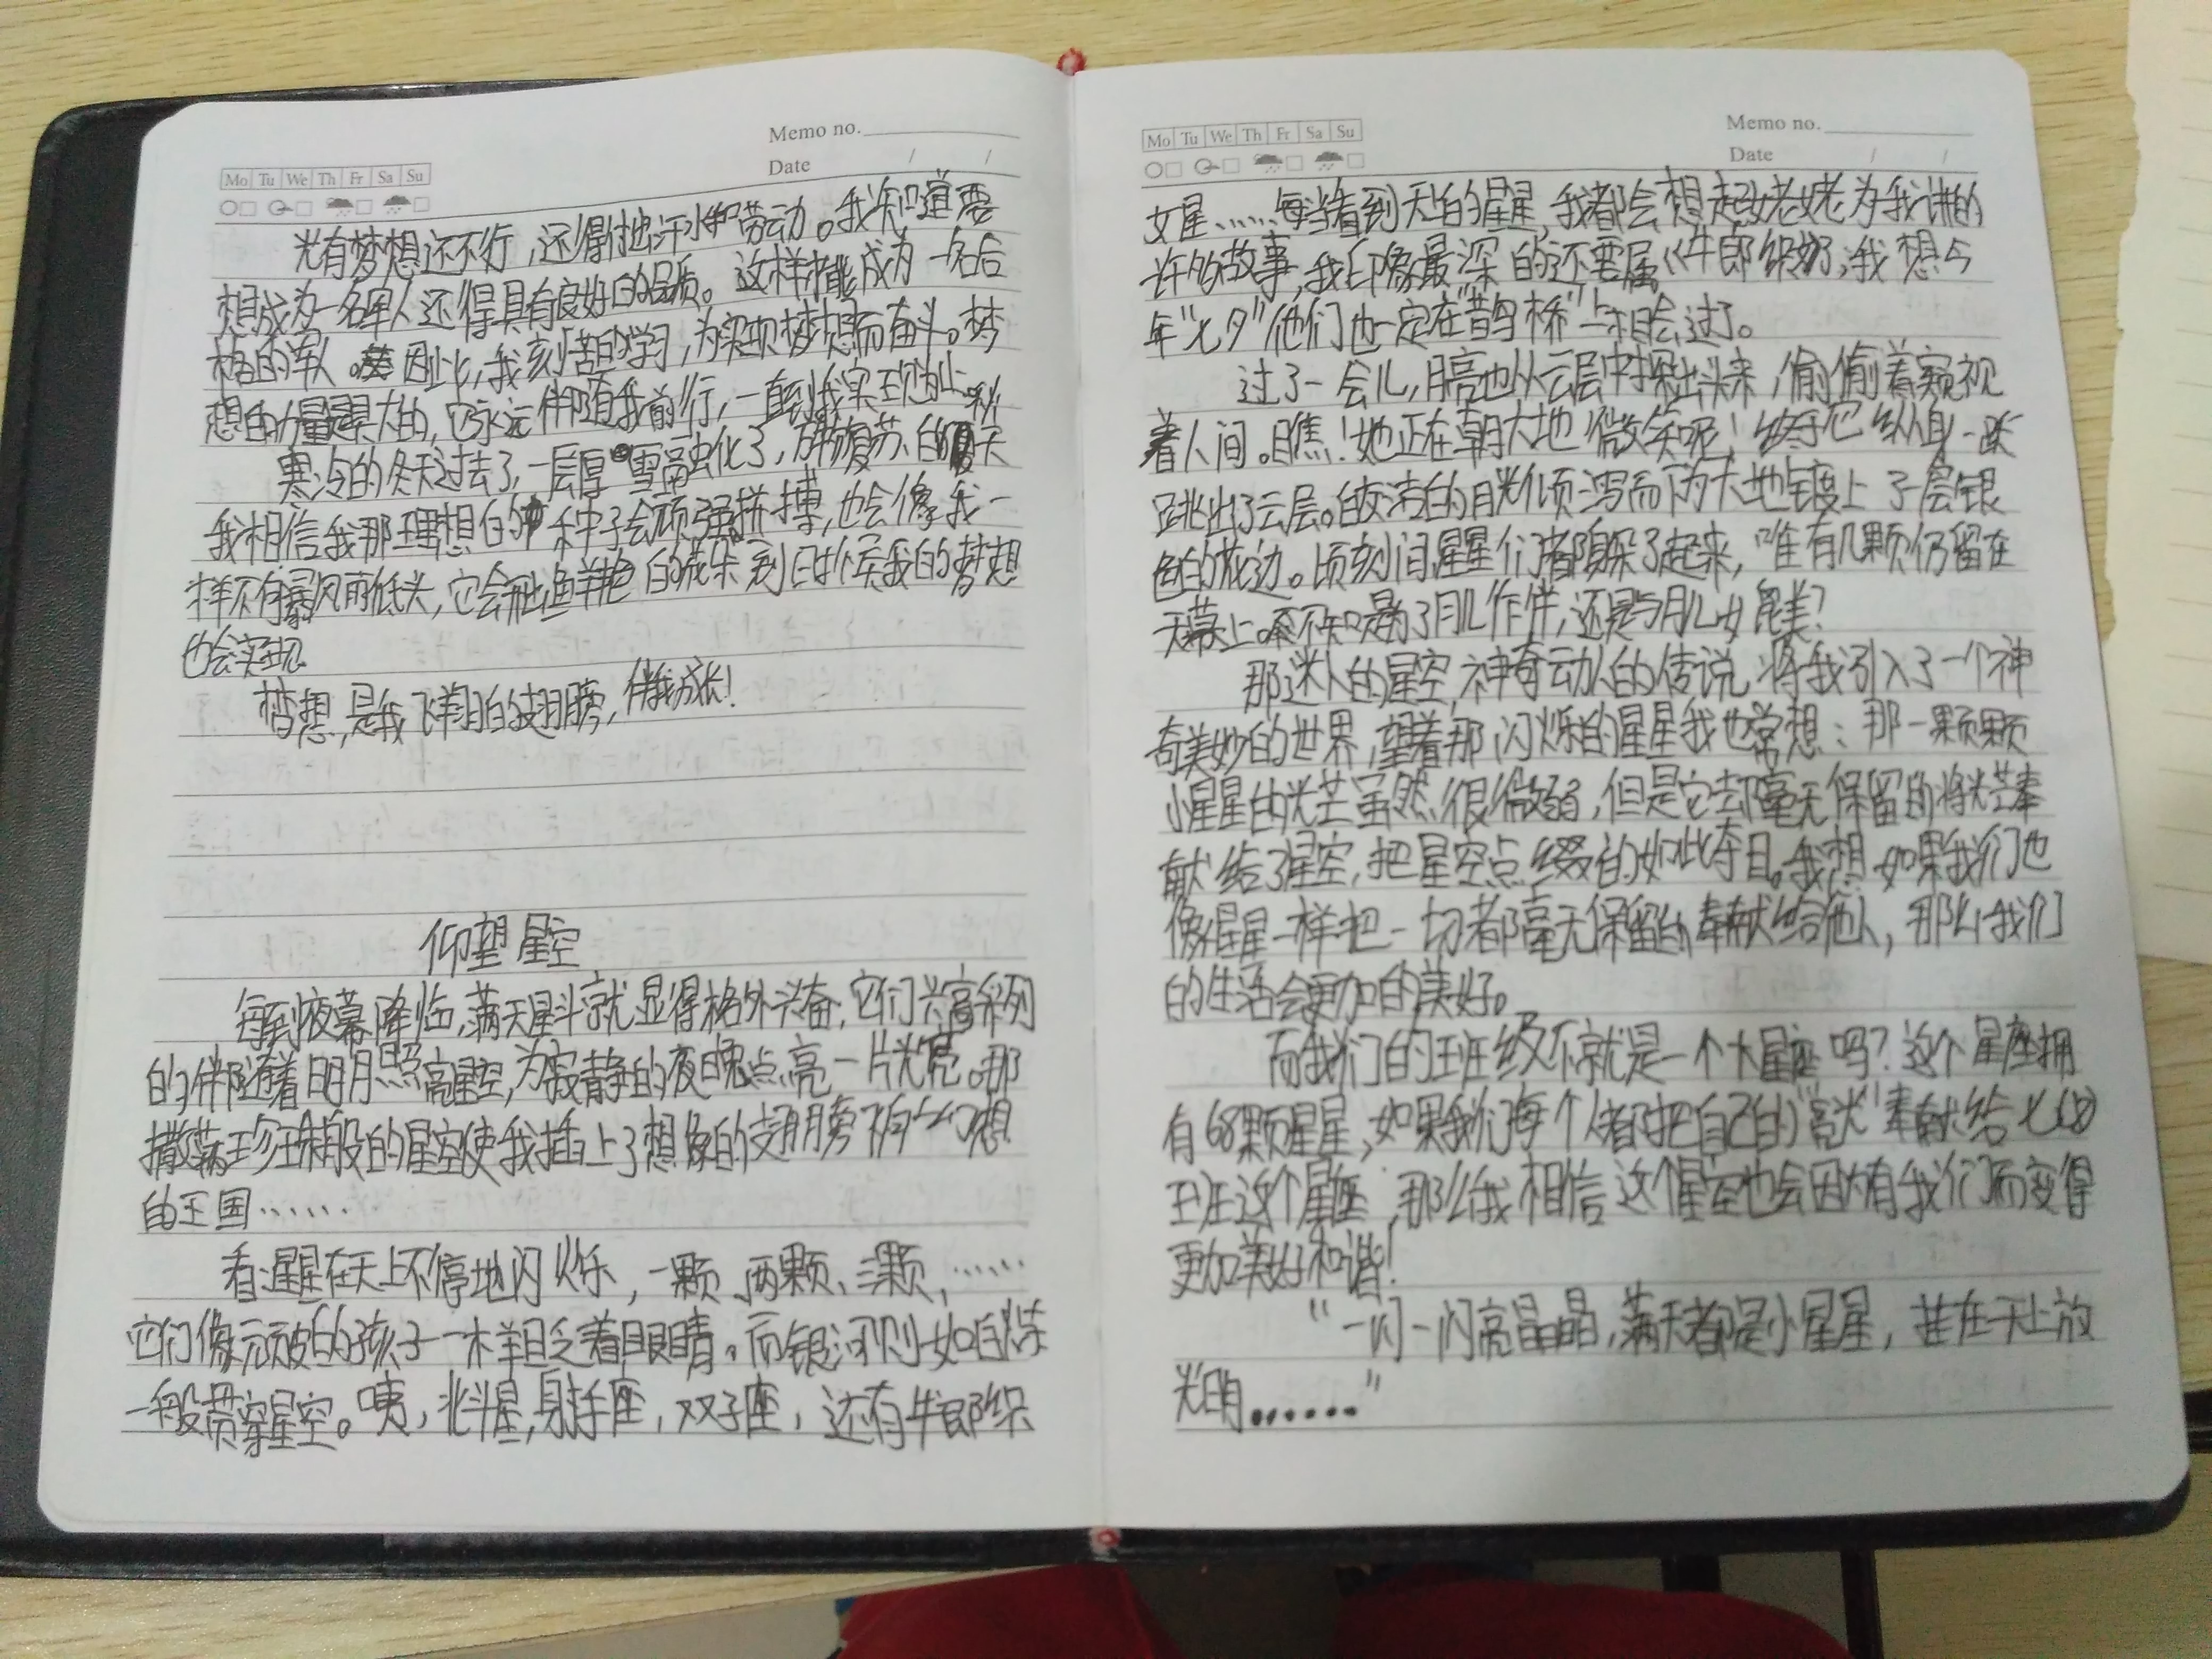 Memo no.
Date / /
Mo Tu We Th Fr Sa Su
光有梦想还不行，还得付出汗水和劳动。我知道要
想成为一名军人还得具有良好的品质。这样才能成为一名合
格的军人。因此，我刻苦的学习，为实现梦想而奋斗。梦
想的力量是巨大的，它永远伴随我前行，一直到我实现为止
寒冷的冬天过去了，一层厚雪融化了，万物复苏的夏天
我相信我那理想的种子会顽强拼搏，也会像我一
样不向暴风雨低头，它会开出鲜艳的花朵到时候我的梦想
也会实现
梦想，是我飞翔的翅膀，伴我成长！
仰望星空
每到夜幕降临，满天星斗就显得格外兴奋，它们兴高采列
的伴随着明月照亮星空，为寂静的夜晚点亮一片光亮。那
撒满珍珠般的星空使我插上了想像的翅膀飞向幻想
的王国……
看星星在天上不停地闪烁，一颗、两颗、三颗，……
它们像顽皮的孩子一样眨着眼睛。而银河则如白带
一般贯穿星空。咦，北斗星，射手座，双子座，还有牛郎织
Mo Tu We Th Fr Sa Su
Memo no.
Date / /
女星……每当看到天上的星星，我都会想起姥姥为我讲的
许多故事，我印像最深的还要属《牛郎织女》，我想今
年“七夕”他们也一定在“鹊桥”上相会过了。
过了一会儿，月亮也从云层中探出头来，偷偷着窥视
着人间。瞧！她正在朝大地微笑呢！终于它纵身一跃
跳出了云层。皎洁的月光倾泻而下为大地镀上了层银
色的花边。顷刻间星星们都躲了起来，唯有几颗仍留在
天幕上。不知是为了月儿作伴，还是与月儿媲美？
那迷人的星空，神奇动人的传说，将我引入了一个神
奇美妙的世界，望着那闪烁的星星我也常想：那一颗颗
小星星的光芒虽然很微弱，但是它却毫无保留的将光芒奉
献给了星空，把星空点缀的如此夺目。我想如果我们也
像星星一样把一切都毫无保留的奉献给他人，那么我们
的生活会更加的美好。
而我们的班级不就是一个大星座吗？这个星座拥
有68颗星星，如果我们每个人都把自己的“亮光”奉献给七(8)
班这个星座，那么我相信这个星空也会因为有我们而变得
更加美好和谐！
“一闪一闪亮晶晶，满天都是小星星，挂在天上放
光明……”